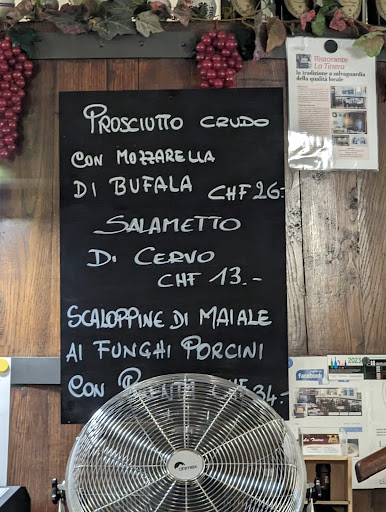 PROSCIUTTO CRUDO
CON MOZZARELLA
DI BUFALA CHF 26.-
SALAMETTO
DI CERVO
CHF 13.-
SCALOPPINE DI MAIALE
AI FUNGHI PORCINI
CON CHF 34.-
Ristorante
La Tinera
la tradizione a salvaguardia
della qualità locale
facebook
2023